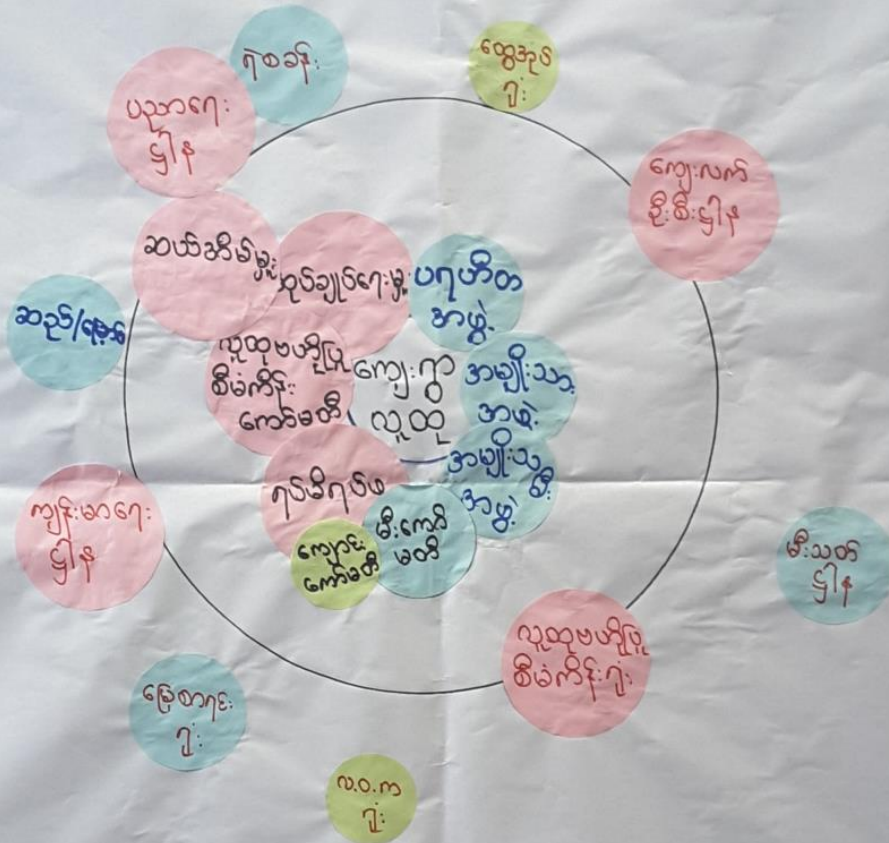 ရဲစခန်း
ထွေအုပ်
ရုံး
ပညာရေး
ဌါန
ကျေးလက်
ဦးစီးဌါန
ဆယ်အိမ်မှူး
အုပ်ချုပ်ရေးမှူး
ပရဟိတ
အဖွဲ့
ဆည်/မြောင်း
လူထုဗဟိုပြု
စီမံကိန်း
ကော်မတီ
ကျေးရွာ
လူထု
အမျိုးသား
အဖွဲ့
အမျိုးသ္မီး
အဖွဲ့
ရပ်မိရပ်ဖ
မီးကော်
မတီ
ကျောင်း
ကော်မတီ
ကျန်းမာရေး
ဌါန
မီးသတ်
ဌါန
လူထုဗဟိုပြု
စီမံကိန်းရုံး
မြေစာရင်း
ရုံး
လ.ဝ.က
ရုံး